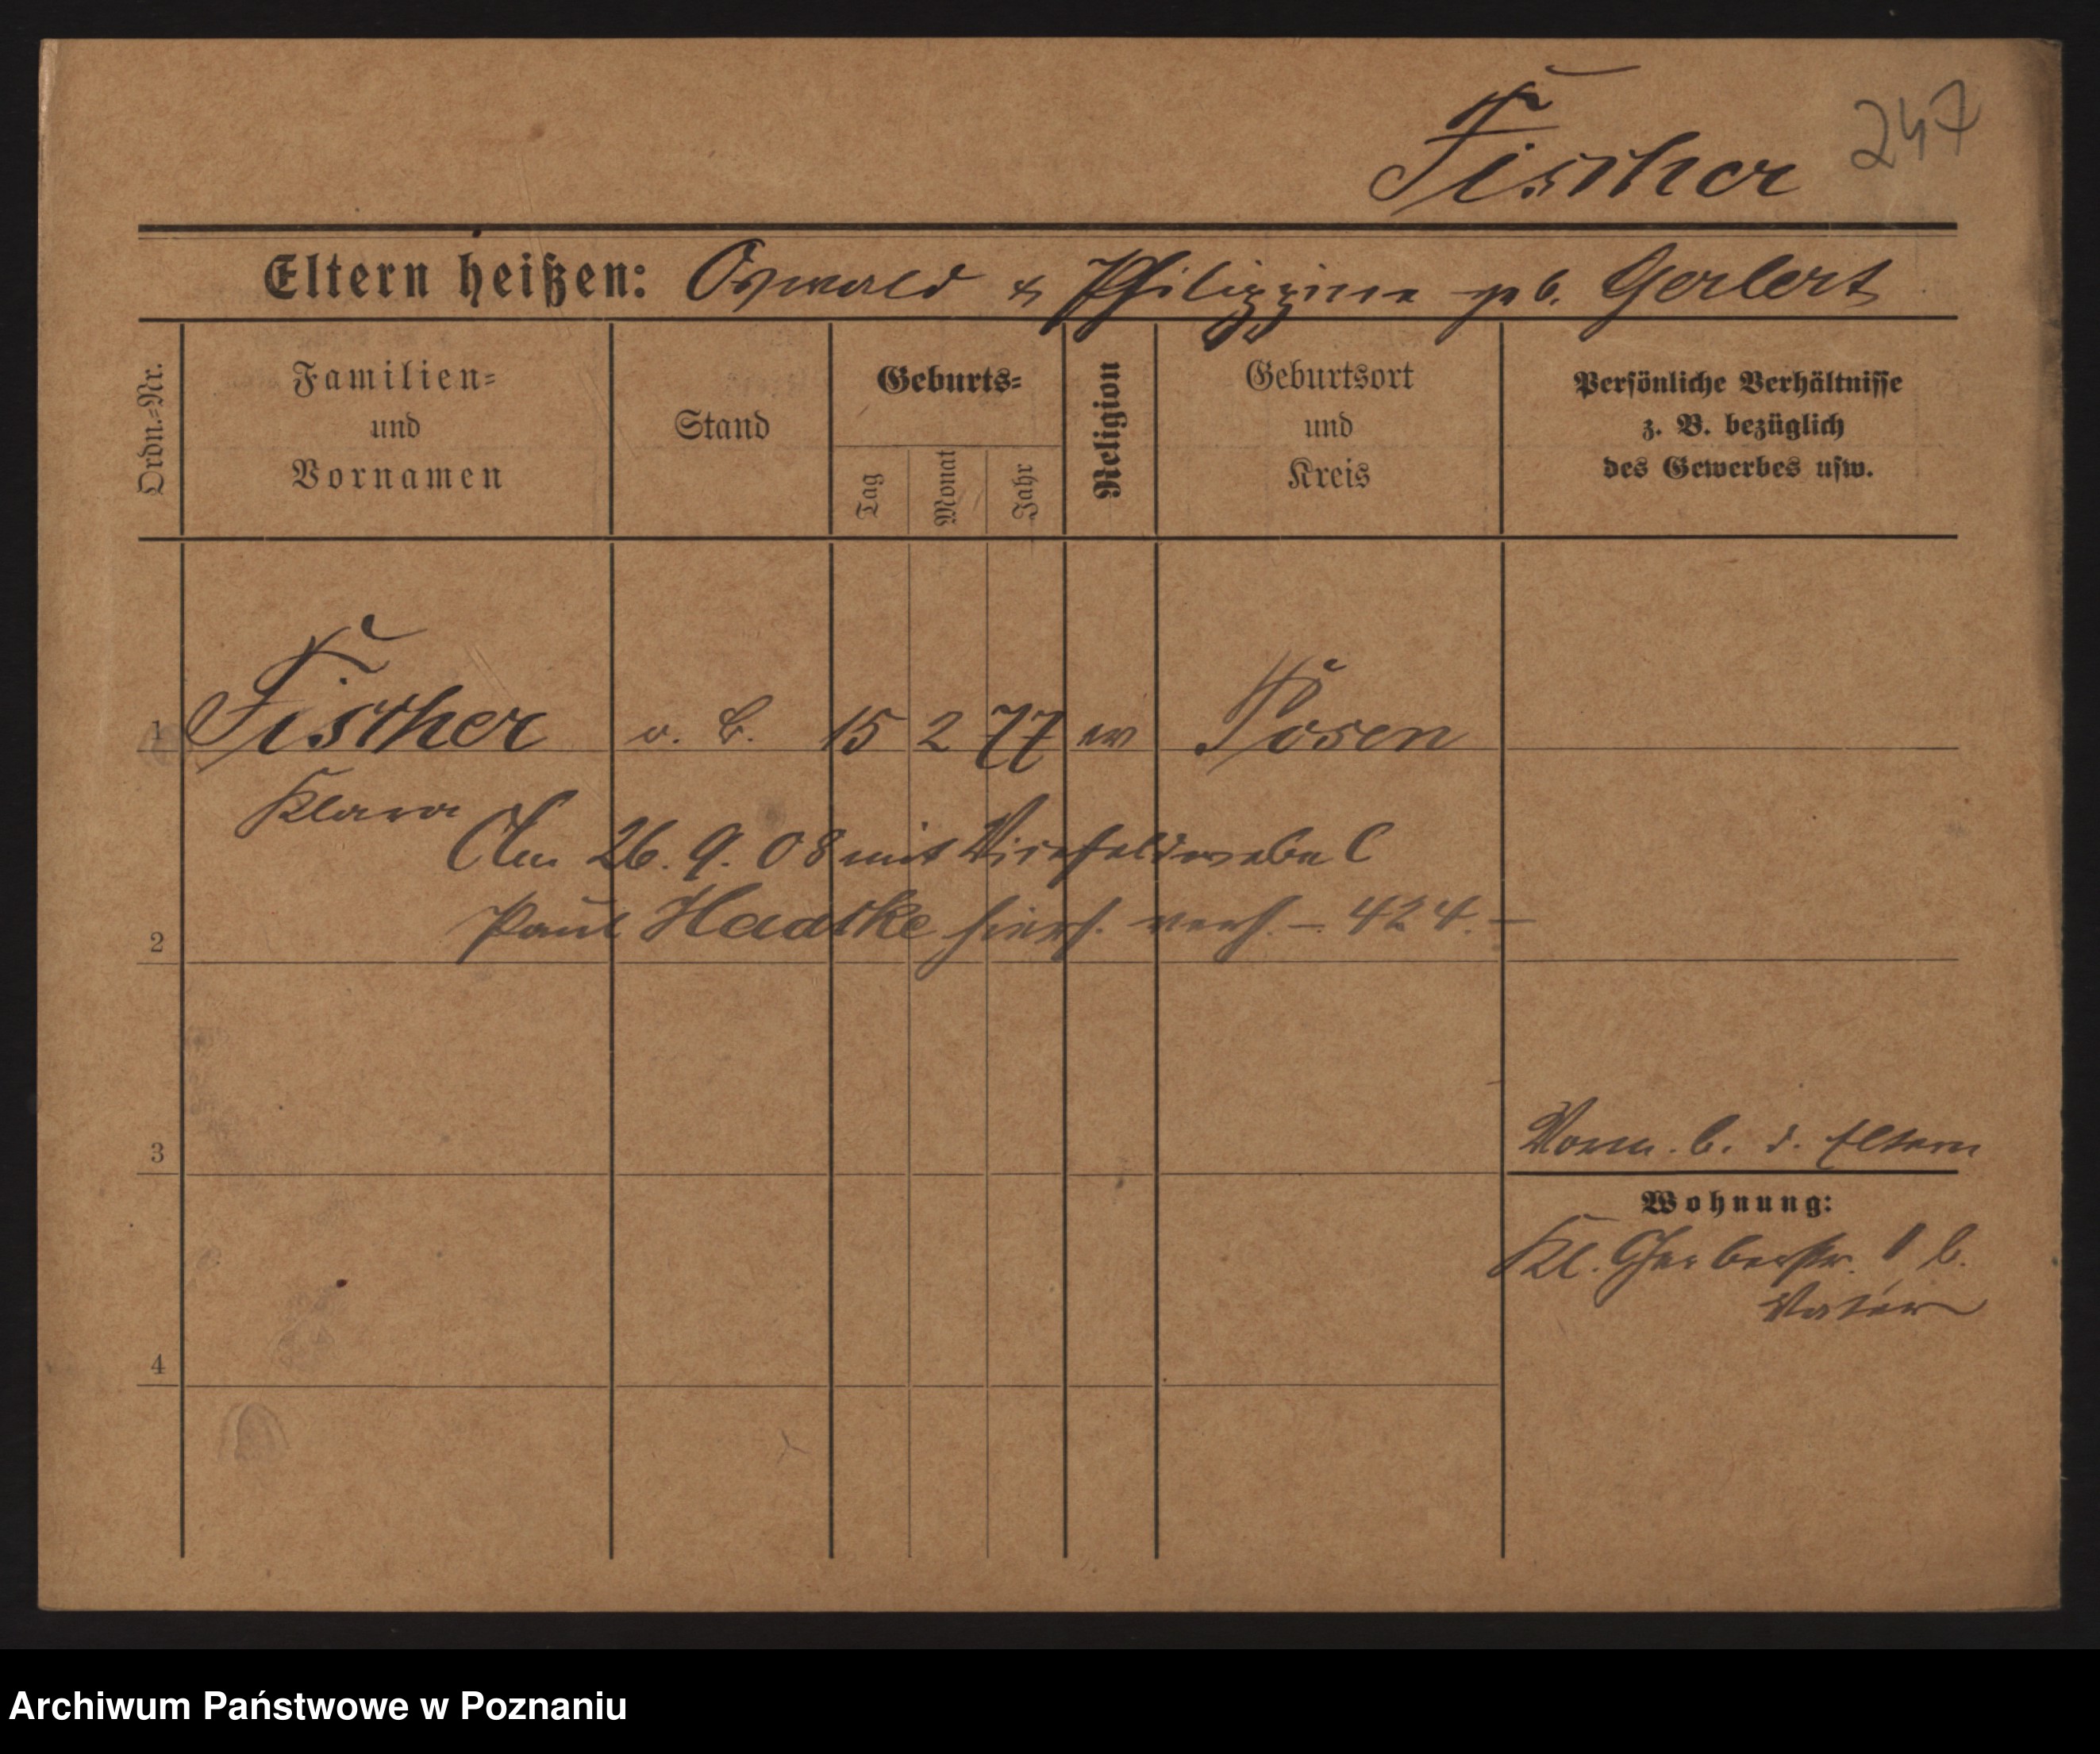 Fischer
247
Eltern heißen: Oswald & Philippine geb. Gerlert
Ordn.=Nr.
Familien=
und
Vornamen
Stand
Geburts=
Tag
Monat
Jahr
Religion
Geburtsort
und
Kreis
Persönliche Verhältnisse
z. B. bezüglich
des Gewerbes usw.
1 Fischer o. B. 15 2 77 ev Posen
Klara
Am 26. 9. 08 mit Vicefeldwebel
2 Paul Hadtke hiers. verh. – 424. –
3 Vorm. b. d. Eltern
Wohnung:
Kl. Gerberstr. b.
Vater
4
Archiwum Państwowe w Poznaniu